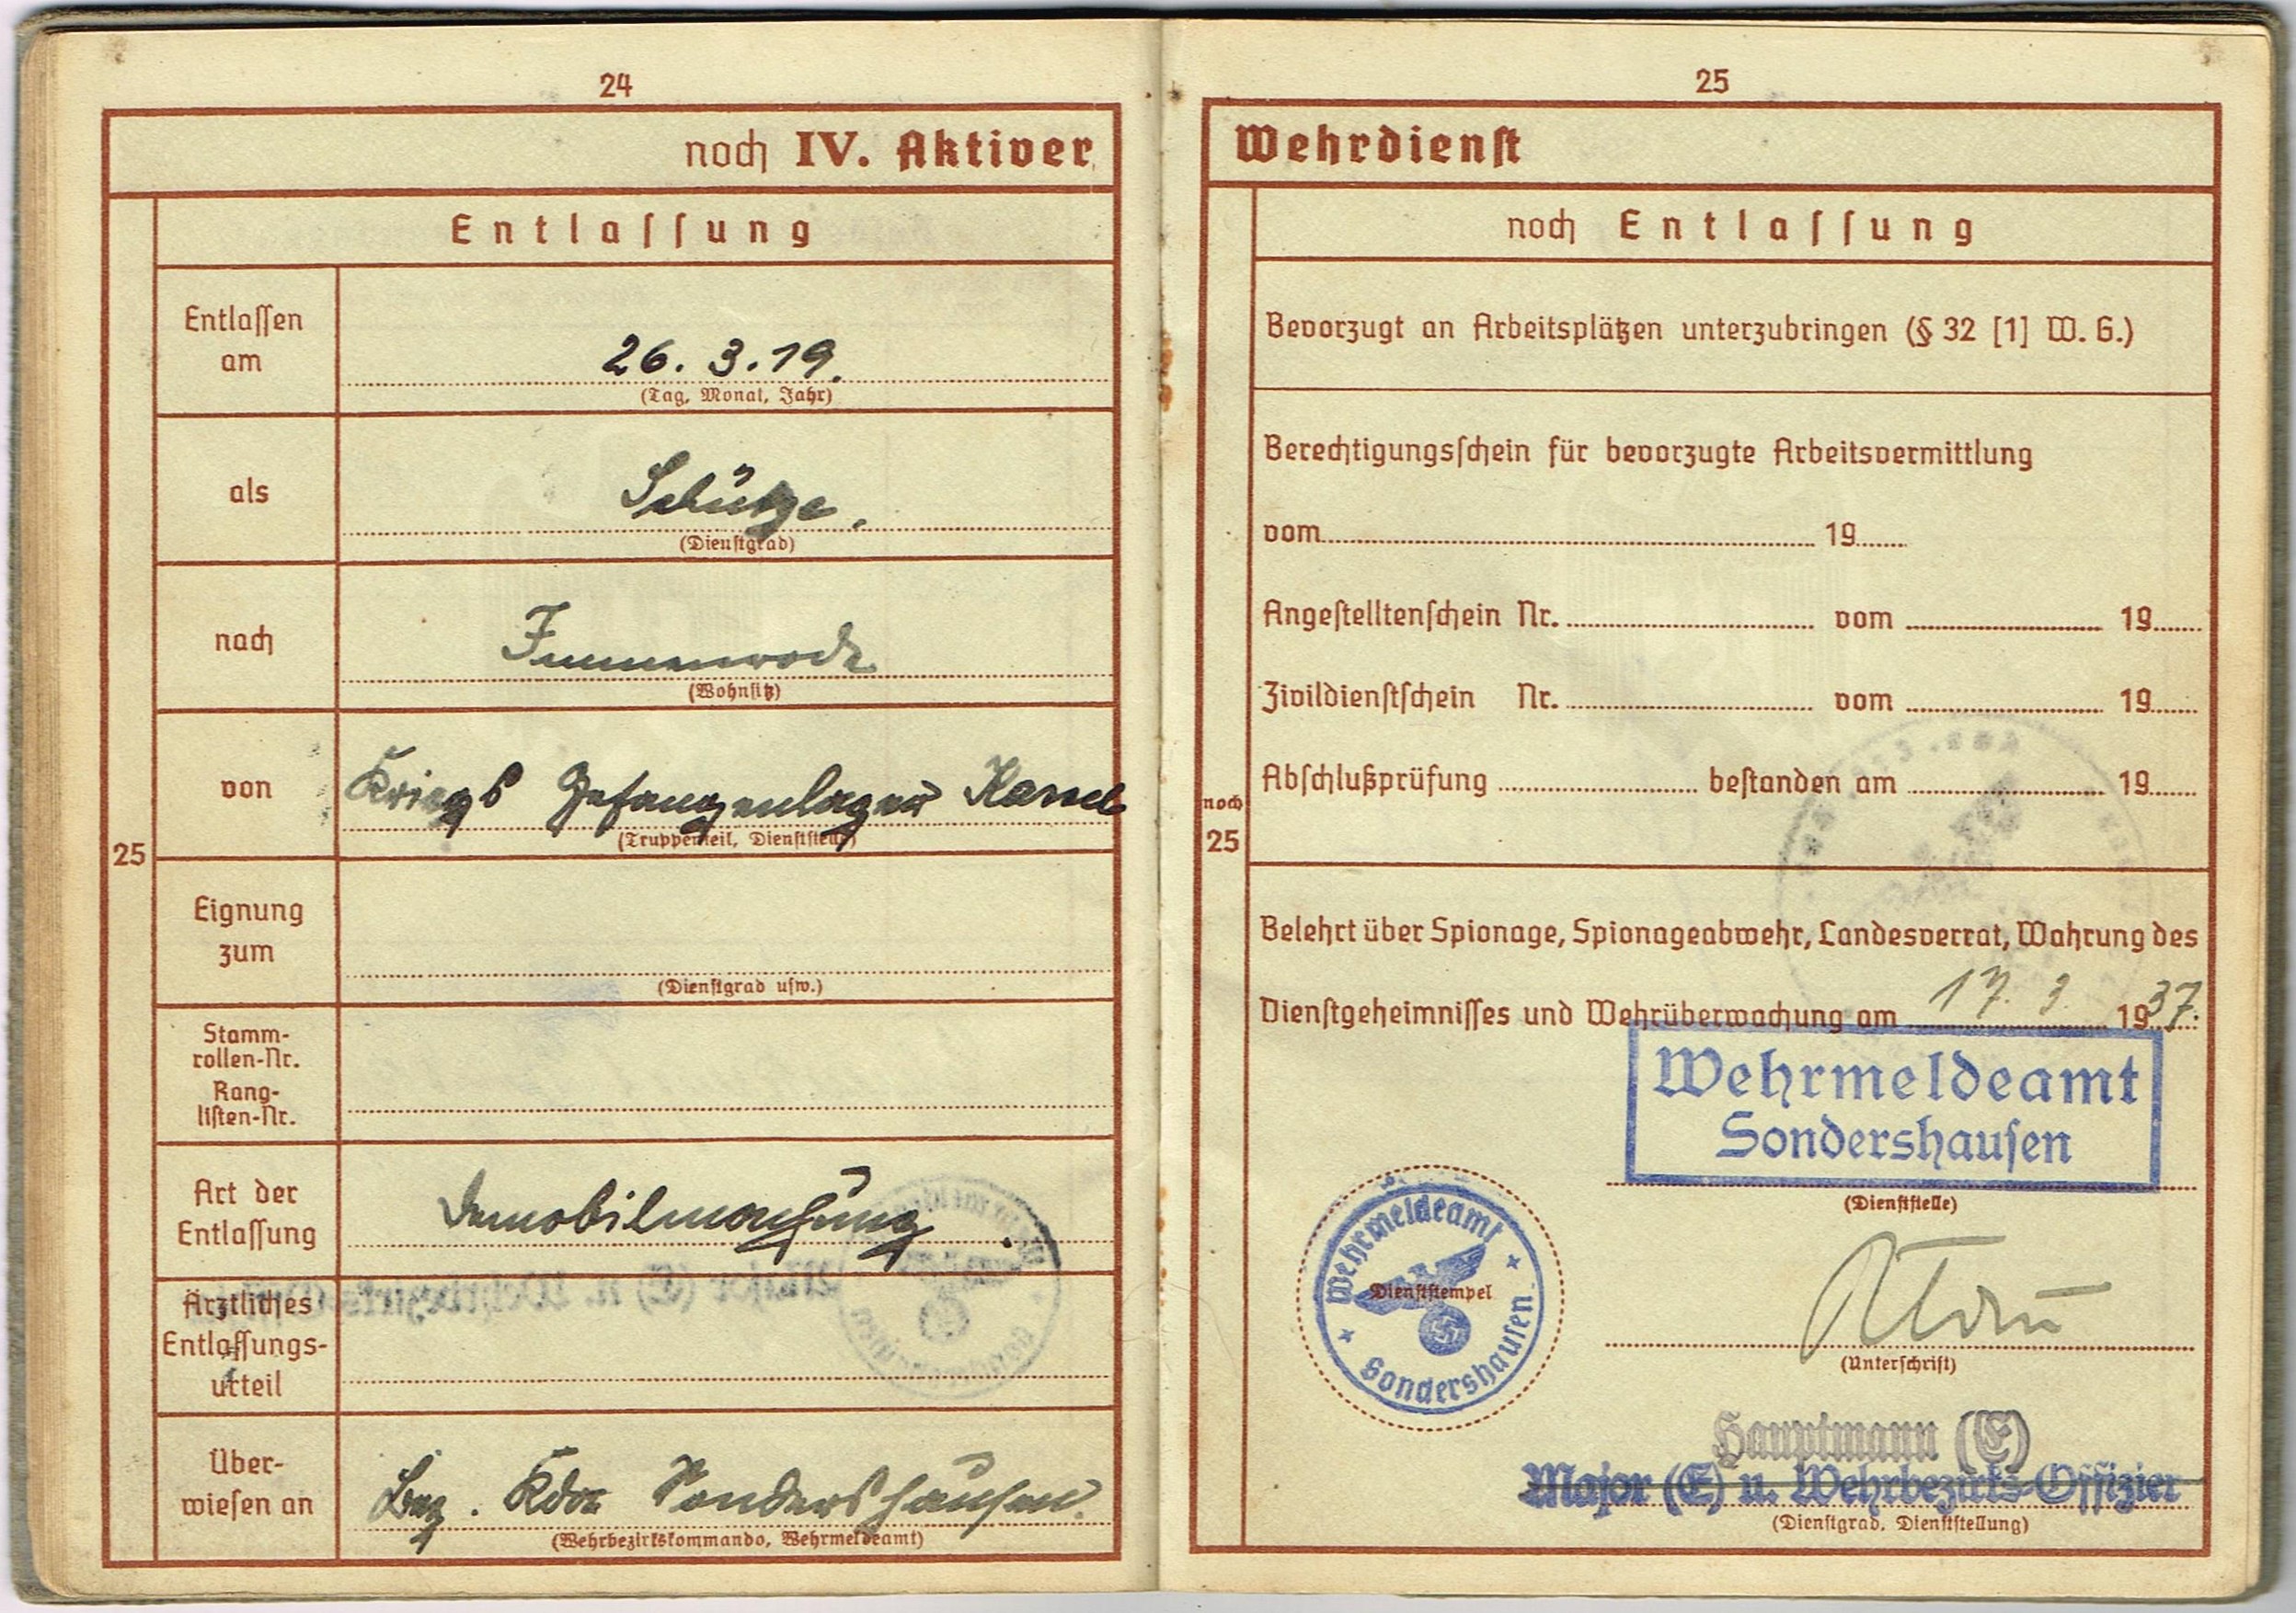 24
noch IV. Aktiver
Entlassung
Entlassen
am
26. 3. 19.
(Tag, Monat, Jahr)
als
Schütze.
(Dienstgrad)
nach
Immenrode
(Wohnsitz)
von
Kriegs Gefangenlager Kassel
(Truppenteil, Dienststelle)
25
Eignung
zum
(Dienstgrad usw.)
Stamm-
rollen-Nr.
Rang-
listen-Nr.
Art der
Entlassung
Demobilmachung.
Ärztliches
Entlassungs-
urteil
Über-
wiesen an
Bez. Kdo Sondershausen.
(Wehrbezirkskommando, Wehrmeldeamt)
25
Wehrdienst
noch Entlassung
Bevorzugt an Arbeitsplätzen unterzubringen (§ 32 [1] W. G.)
Berechtigungsschein für bevorzugte Arbeitsvermittlung
vom 19
Angestelltenschein Nr. vom 19
Zivildienstschein Nr. vom 19
Abschlußprüfung bestanden am 19
noch
25
Belehrt über Spionage, Spionageabwehr, Landesverrat, Wahrung des
Dienstgeheimnisses und Wehrüberwachung am 17. 3. 1937.
Wehrmeldeamt
Sondershausen
(Dienststelle)
Wehrmeldeamt
Dienststempel
Sondershausen
(Unterschrift)
Hauptmann (E)
Major (E) u. Wehrbezirks-Offizier
(Dienstgrad, Dienststellung)